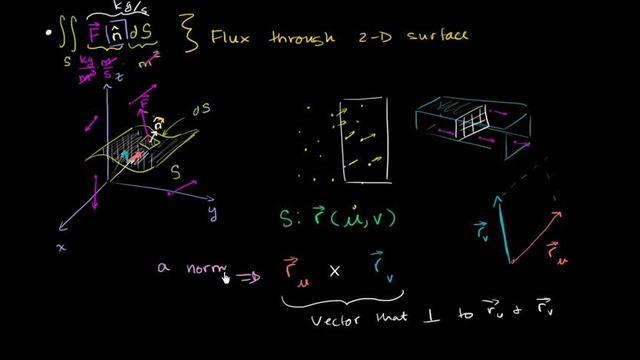 kg/s
∬ F⃗ · n̂ dS } Flux through 2-D surface
S kg/m³ · m/s m²
z
F⃗
n̂
dS
S
y
x
S: r⃗(u,v)
r⃗v
r⃗u
a norm ⇒ r⃗u × r⃗v
Vector that ⊥ to r⃗u + r⃗v